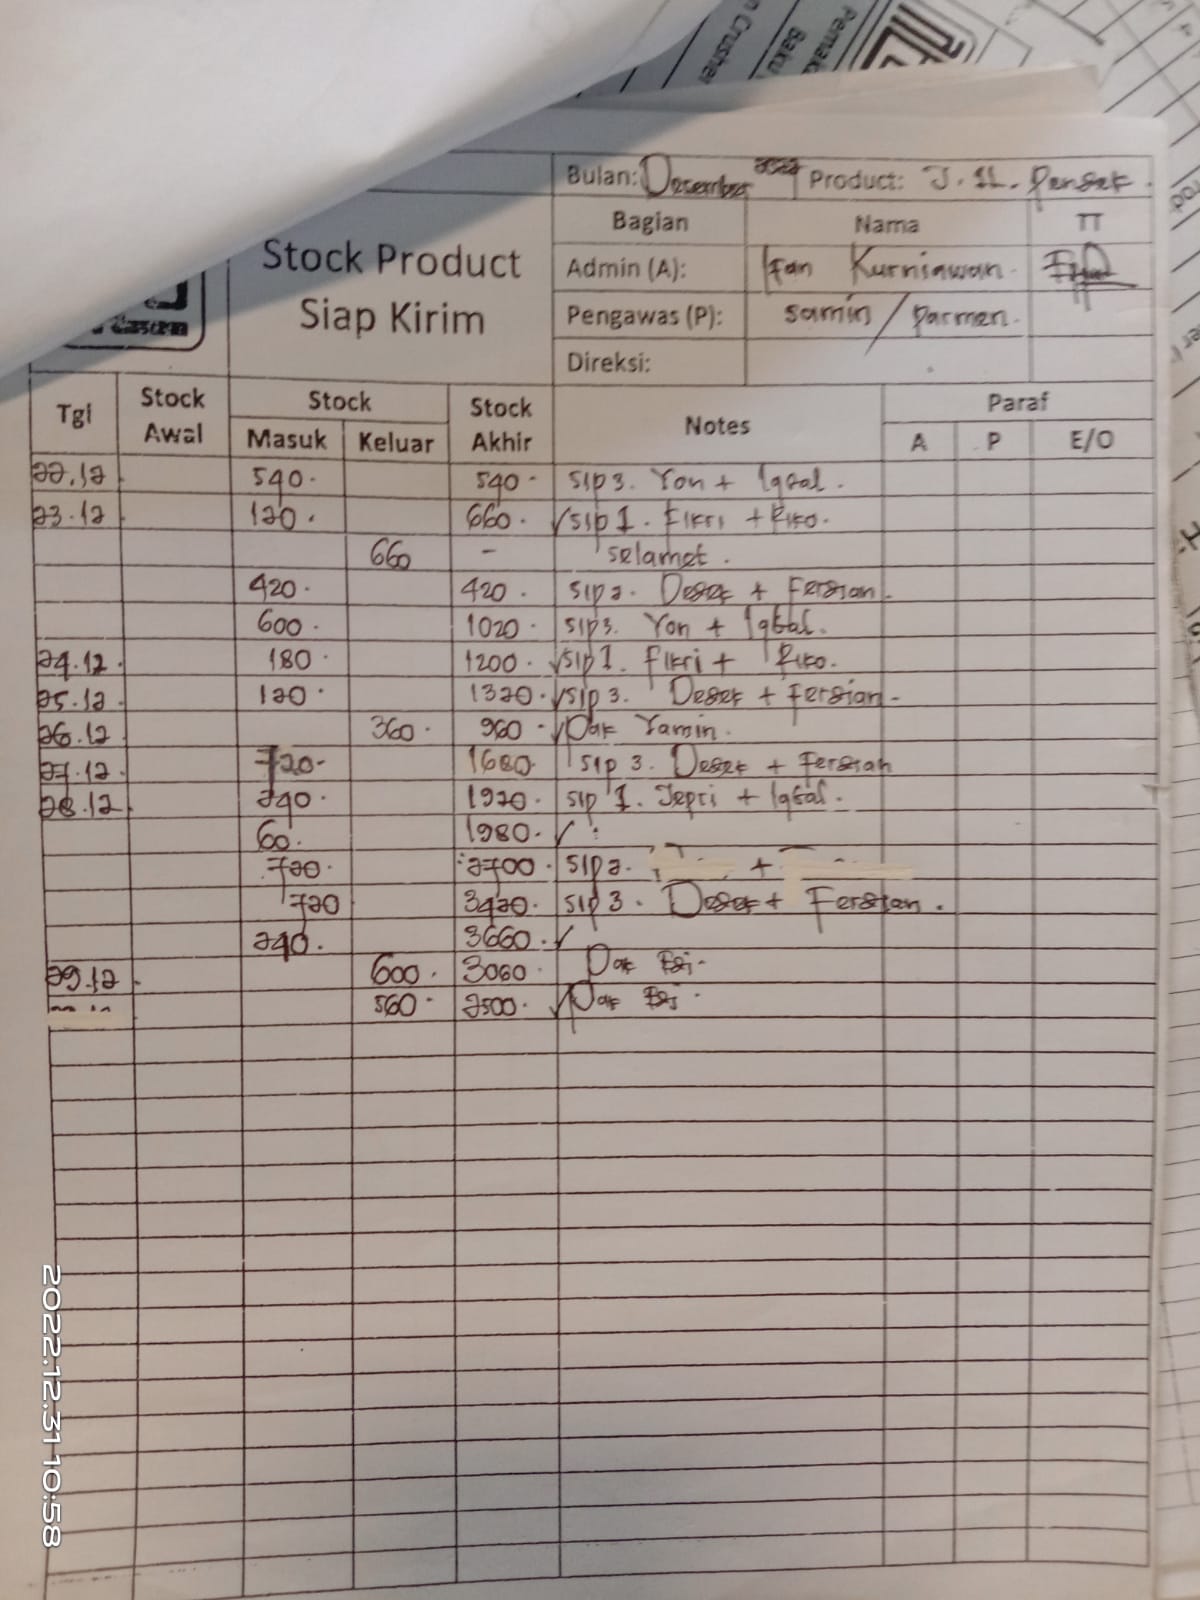 n Crusher
Baku
Pemaka
Bulan: Desember 2022 Product: J. 11. Pendek.
Stock Product
Siap Kirim
Bagian Nama TT
Admin (A): Ifan Kurniawan.
Pengawas (P): samin / Darmen.
Direksi:
Tgl Stock Awal Stock Masuk Keluar Stock Akhir Notes Paraf A P E/O
22.12 540. 540 - sip 3. Yon + Iqbal.
23.12 120. 660. √ sip 1. Fikri + Riko.
660 - selamet.
420. 420. sip 2. + Fersian.
600. 1020. sip 3. Yon + Iqbal.
24.12. 180. 1200. √ sip 1. Fikri + Riko.
25.12. 120. 1320. √ sip 3. + Fersian -
26.12 360. 960 - √ Pak Yamin.
27.12. 720- 1680 sip 3. + Fersian
28.12 240. 1920. sip 1. Jepri + Iqbal.
60. 1980. √
720. 2700. sip 2. +
720 3420. sip 3. + Fersian.
240. 3660. √
29.12 600. 3060. Pak
560. 2500. √ Pak
2022.12.31 10:58